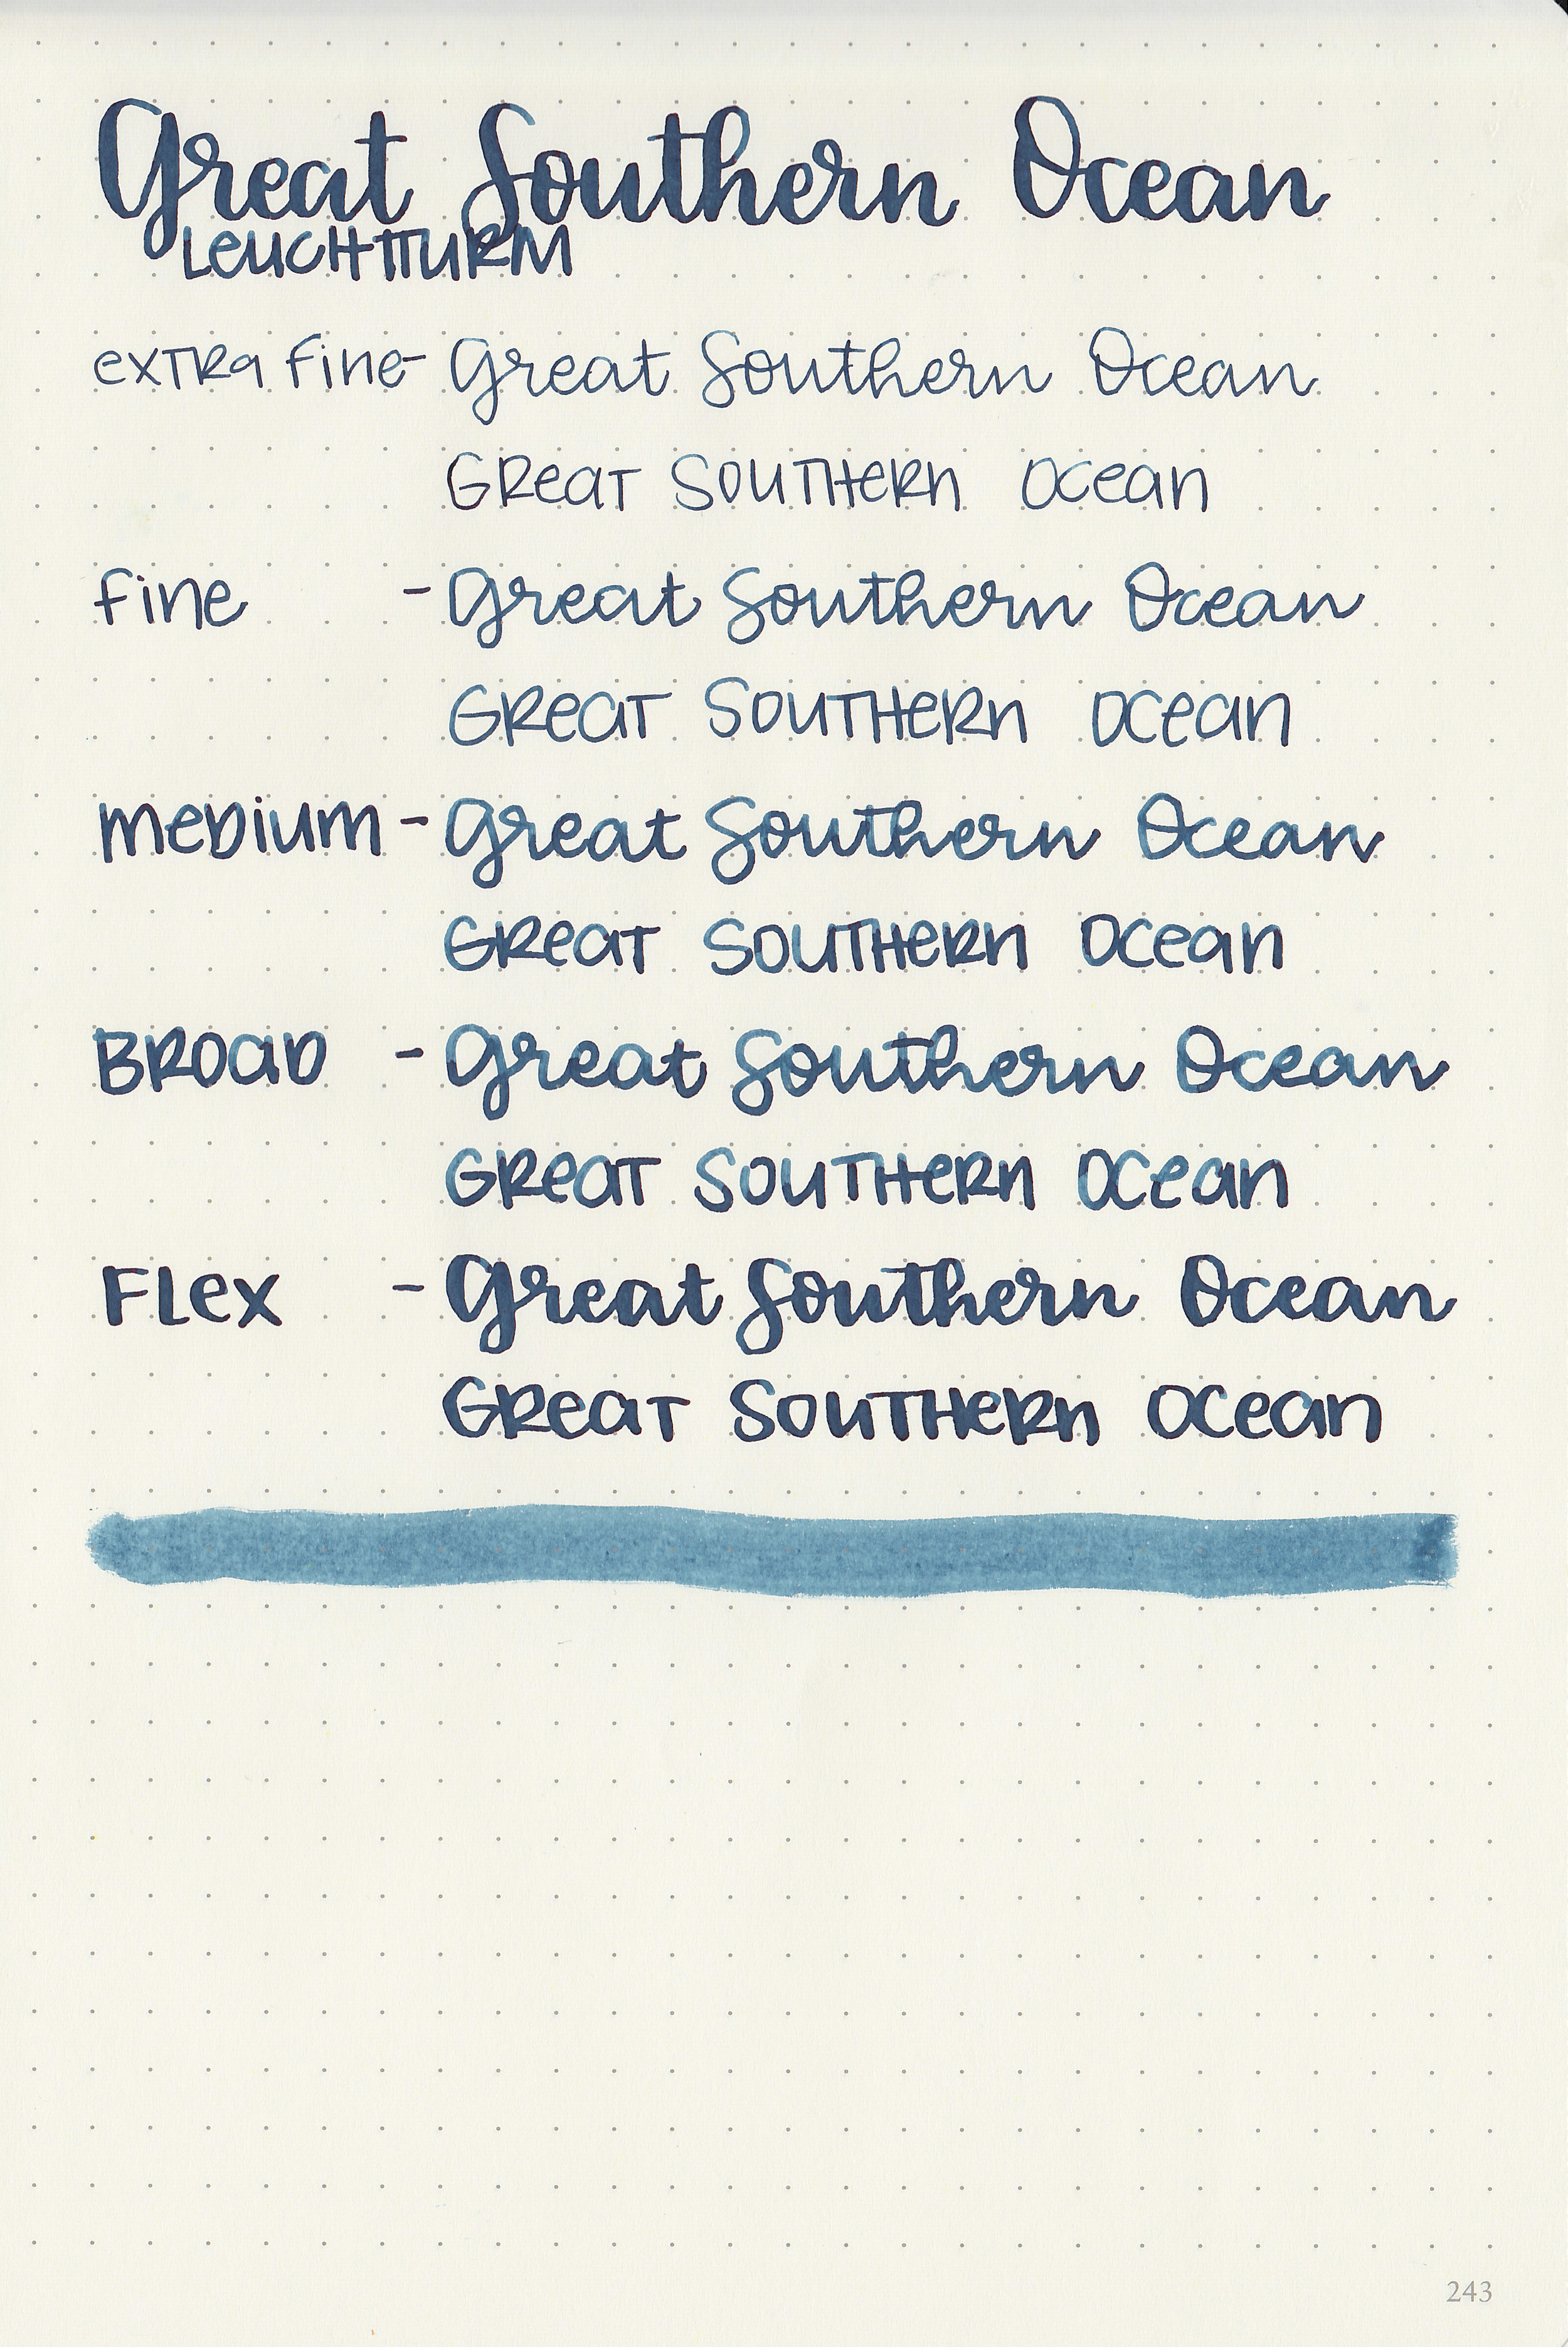 Great Southern Ocean
LEUCHTTURM
extra fine - Great Southern Ocean
GREAT SOUTHERN OCEAN
fine - Great Southern Ocean
GREAT SOUTHERN OCEAN
MEDIUM - Great Southern Ocean
GREAT SOUTHERN OCEAN
BROAD - Great Southern Ocean
GREAT SOUTHERN OCEAN
FLEX - Great Southern Ocean
GREAT SOUTHERN OCEAN
243